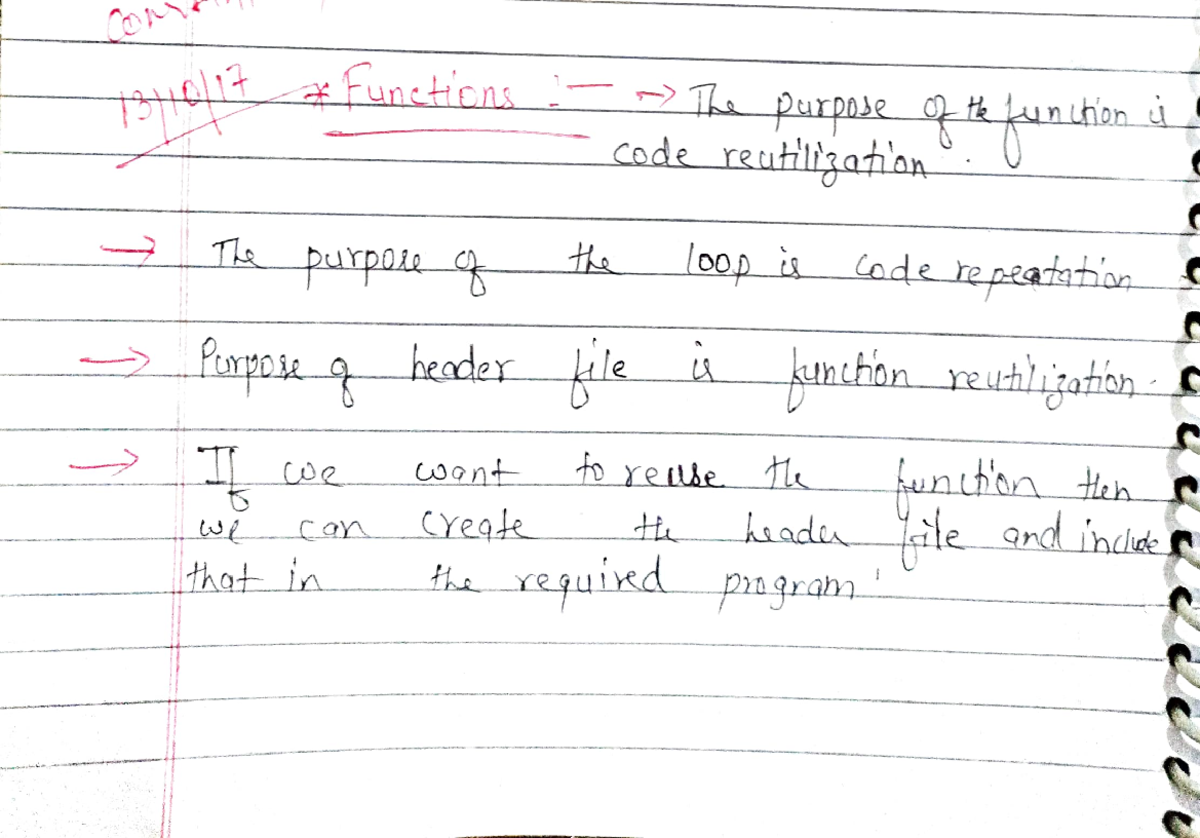 13/10/17 * Functions :- → The purpose of the function is
code reutilization.
→ The purpose of the loop is code repeatation
→ Purpose of header file is function reutilization.
→ If we want to reuse the function then
we can create the header file and include
that in the required program